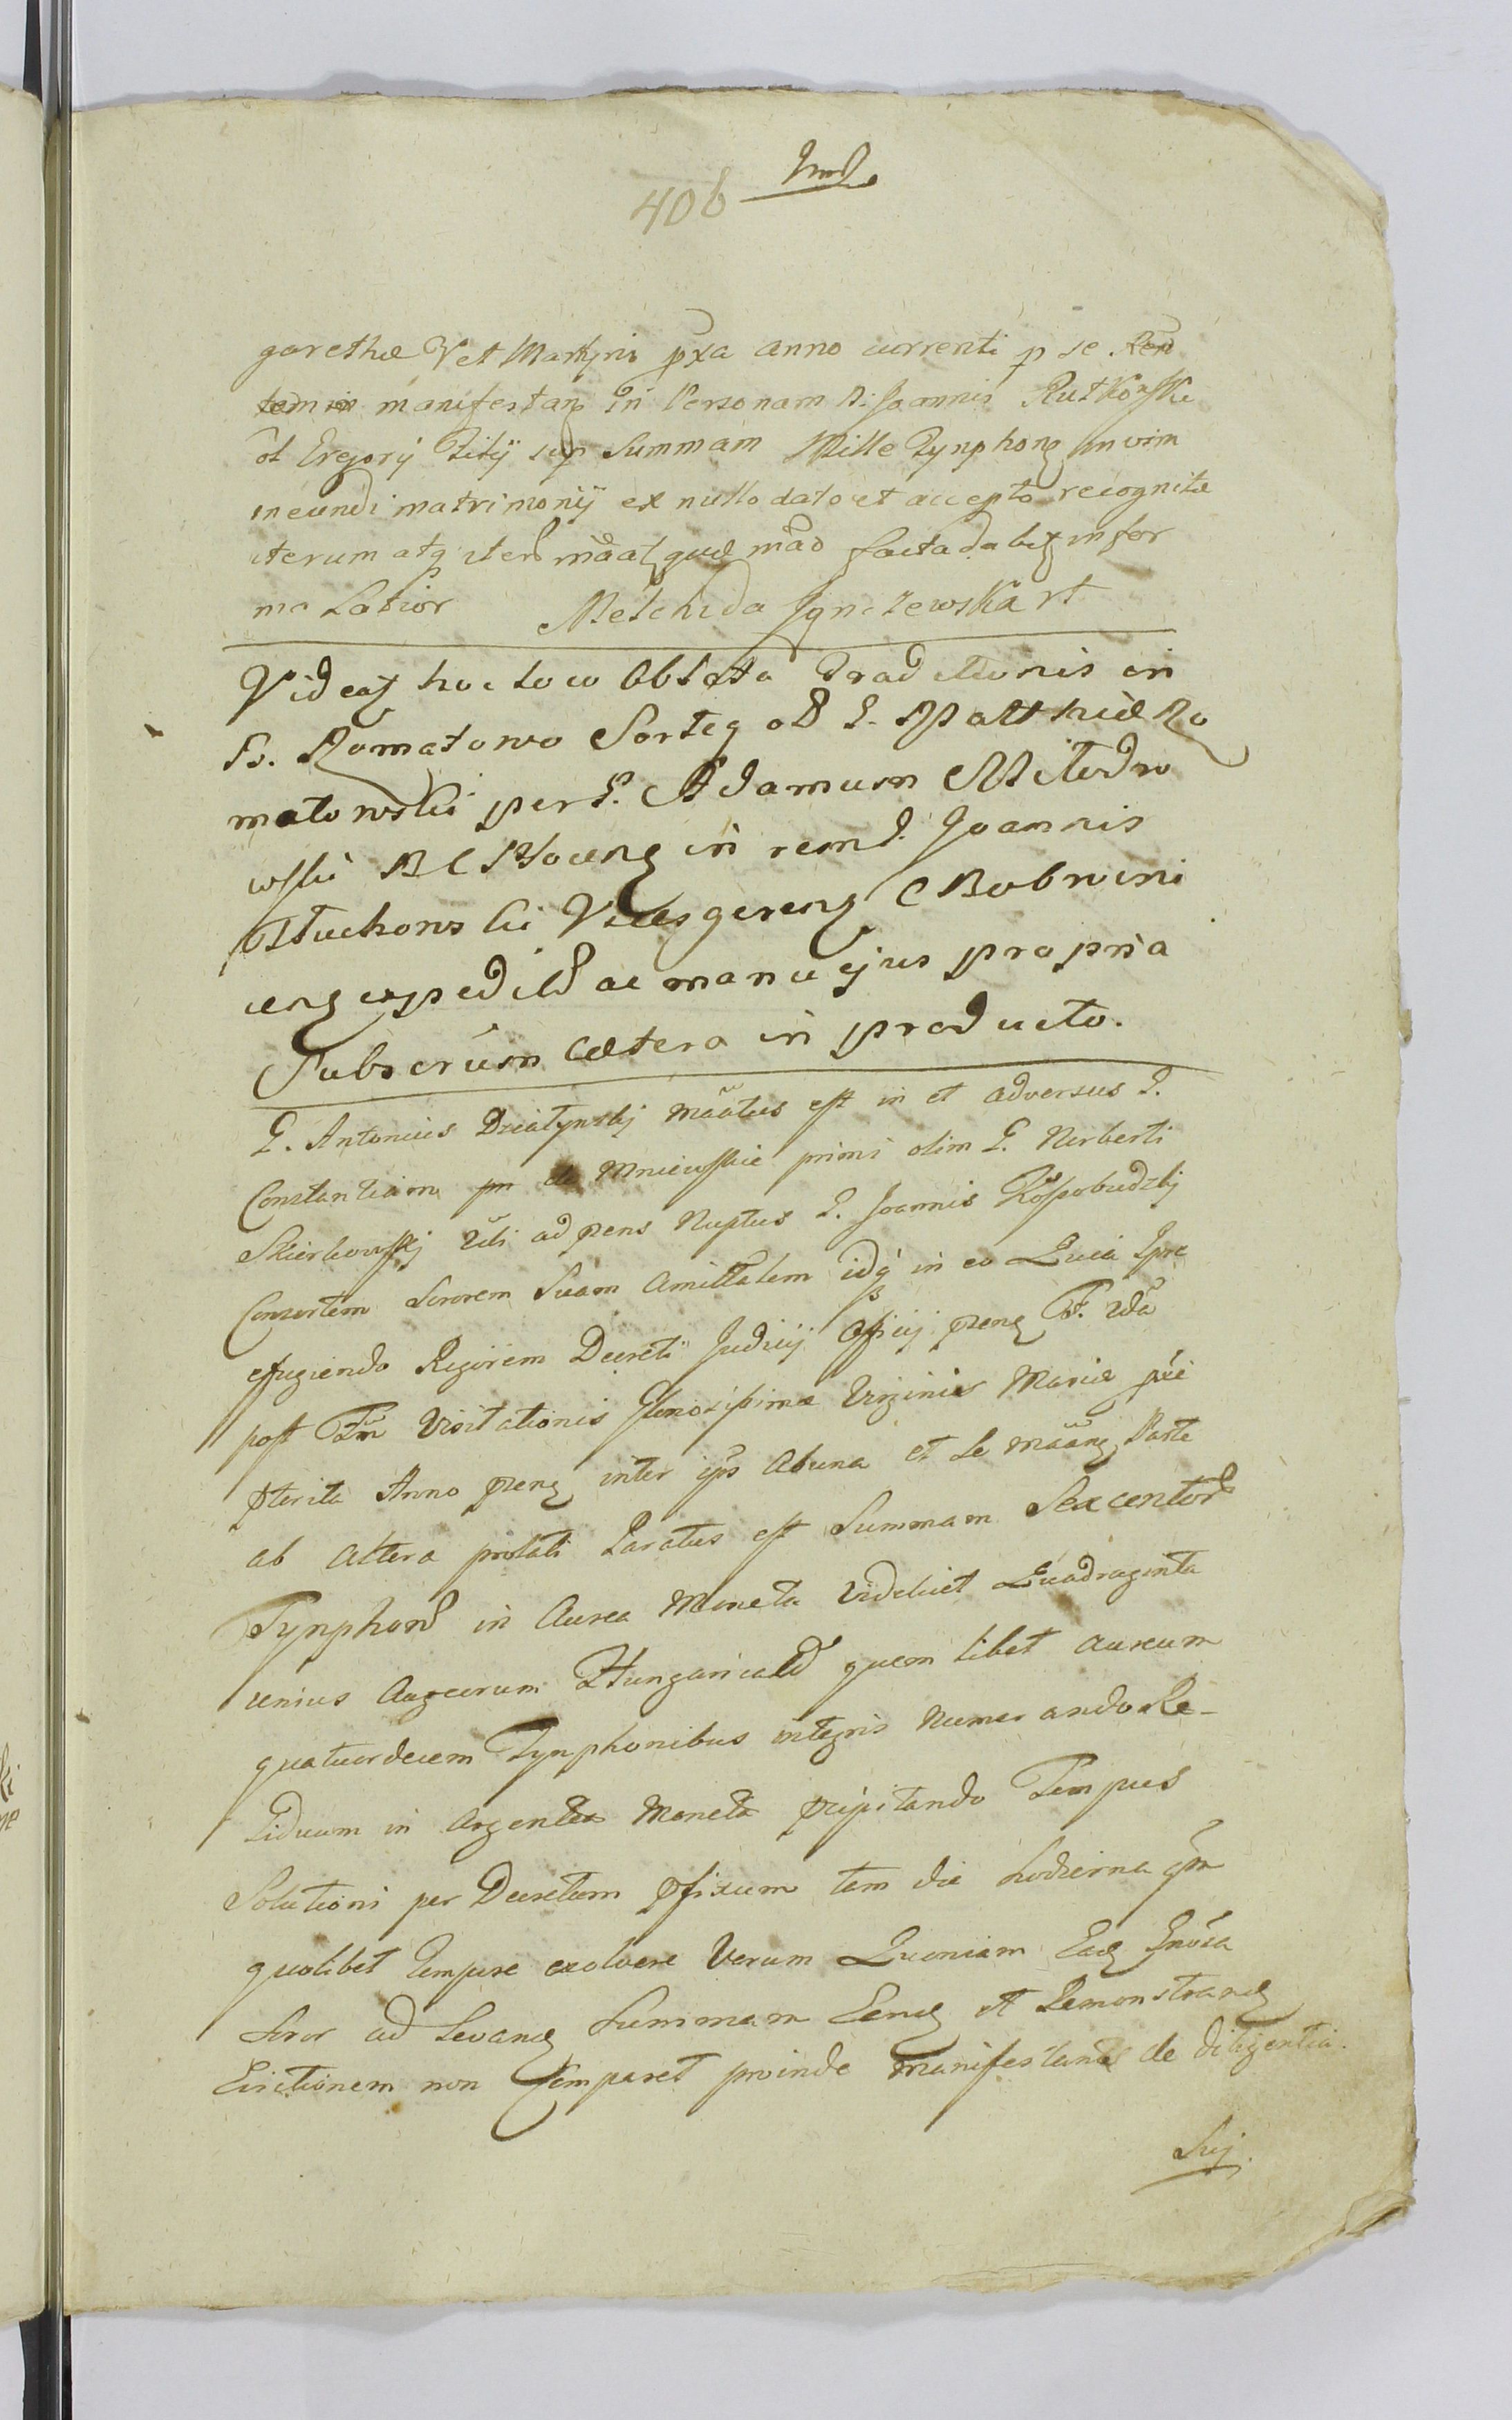 406
garethæ V et Martyris pxa anno currenti p se
manifestan in Personam D. Joannis Rutkowski
ol Gregorij Filij sup Summam Mille Tynphong in vim
ineundi matrimonij ex nullo dato et accepto recognitæ
iterum atq iter maat quæ mao facta dabit in for
ma Latior Melchida Jgnczewska rt
Videat hoc loco Oblata Traditionis in
Fs. Romatowo Sorteg ol G. Matthiæ Ro
matowski per G. Adamum Milodro
wski in rem G. Joannis
Tluchowski Vicesgereng Bobrwini
ceng expedit ac manu ejus propria
Subscrium Cætera in producto.
G. Antonius Dzialynskj maatus est in et adversus G.
Constantiam Mniewskie primi olim G. Norberti
Skierkowskj ad pens Nuptus G. Joannis Rospobudzkj
Consortem Sororem Suam Amittalem idq in eo Quia Ipse
efugiendo Rigorem Decreti Judicij Officij peng F. 2da
post Fm Visitationis Glenoxissimæ Virginis Mariæ pxi
pterita Anno peng inter ips Ab una et Se maang Parte
ab Altera prolati Paratus est Summam Sexcentor
Tynphon in Aurea Moneta Videlicet Quadraginta
unius Aureorum Hungarical quem libet aureum
quatuordecem Tynphonibus integris Numerando Re-
siduum in Argentea Moneta pcipitando Tempus
Solutioni per Decretum pfixum tam die hodierna qm
quolibet tempore exolvere Verum Quoniam Ead Gnosa
Soror ad Levand Summam Eand et Demonstrand
Evictionem non Comparet proinde manifestand de diligentia
Suj.